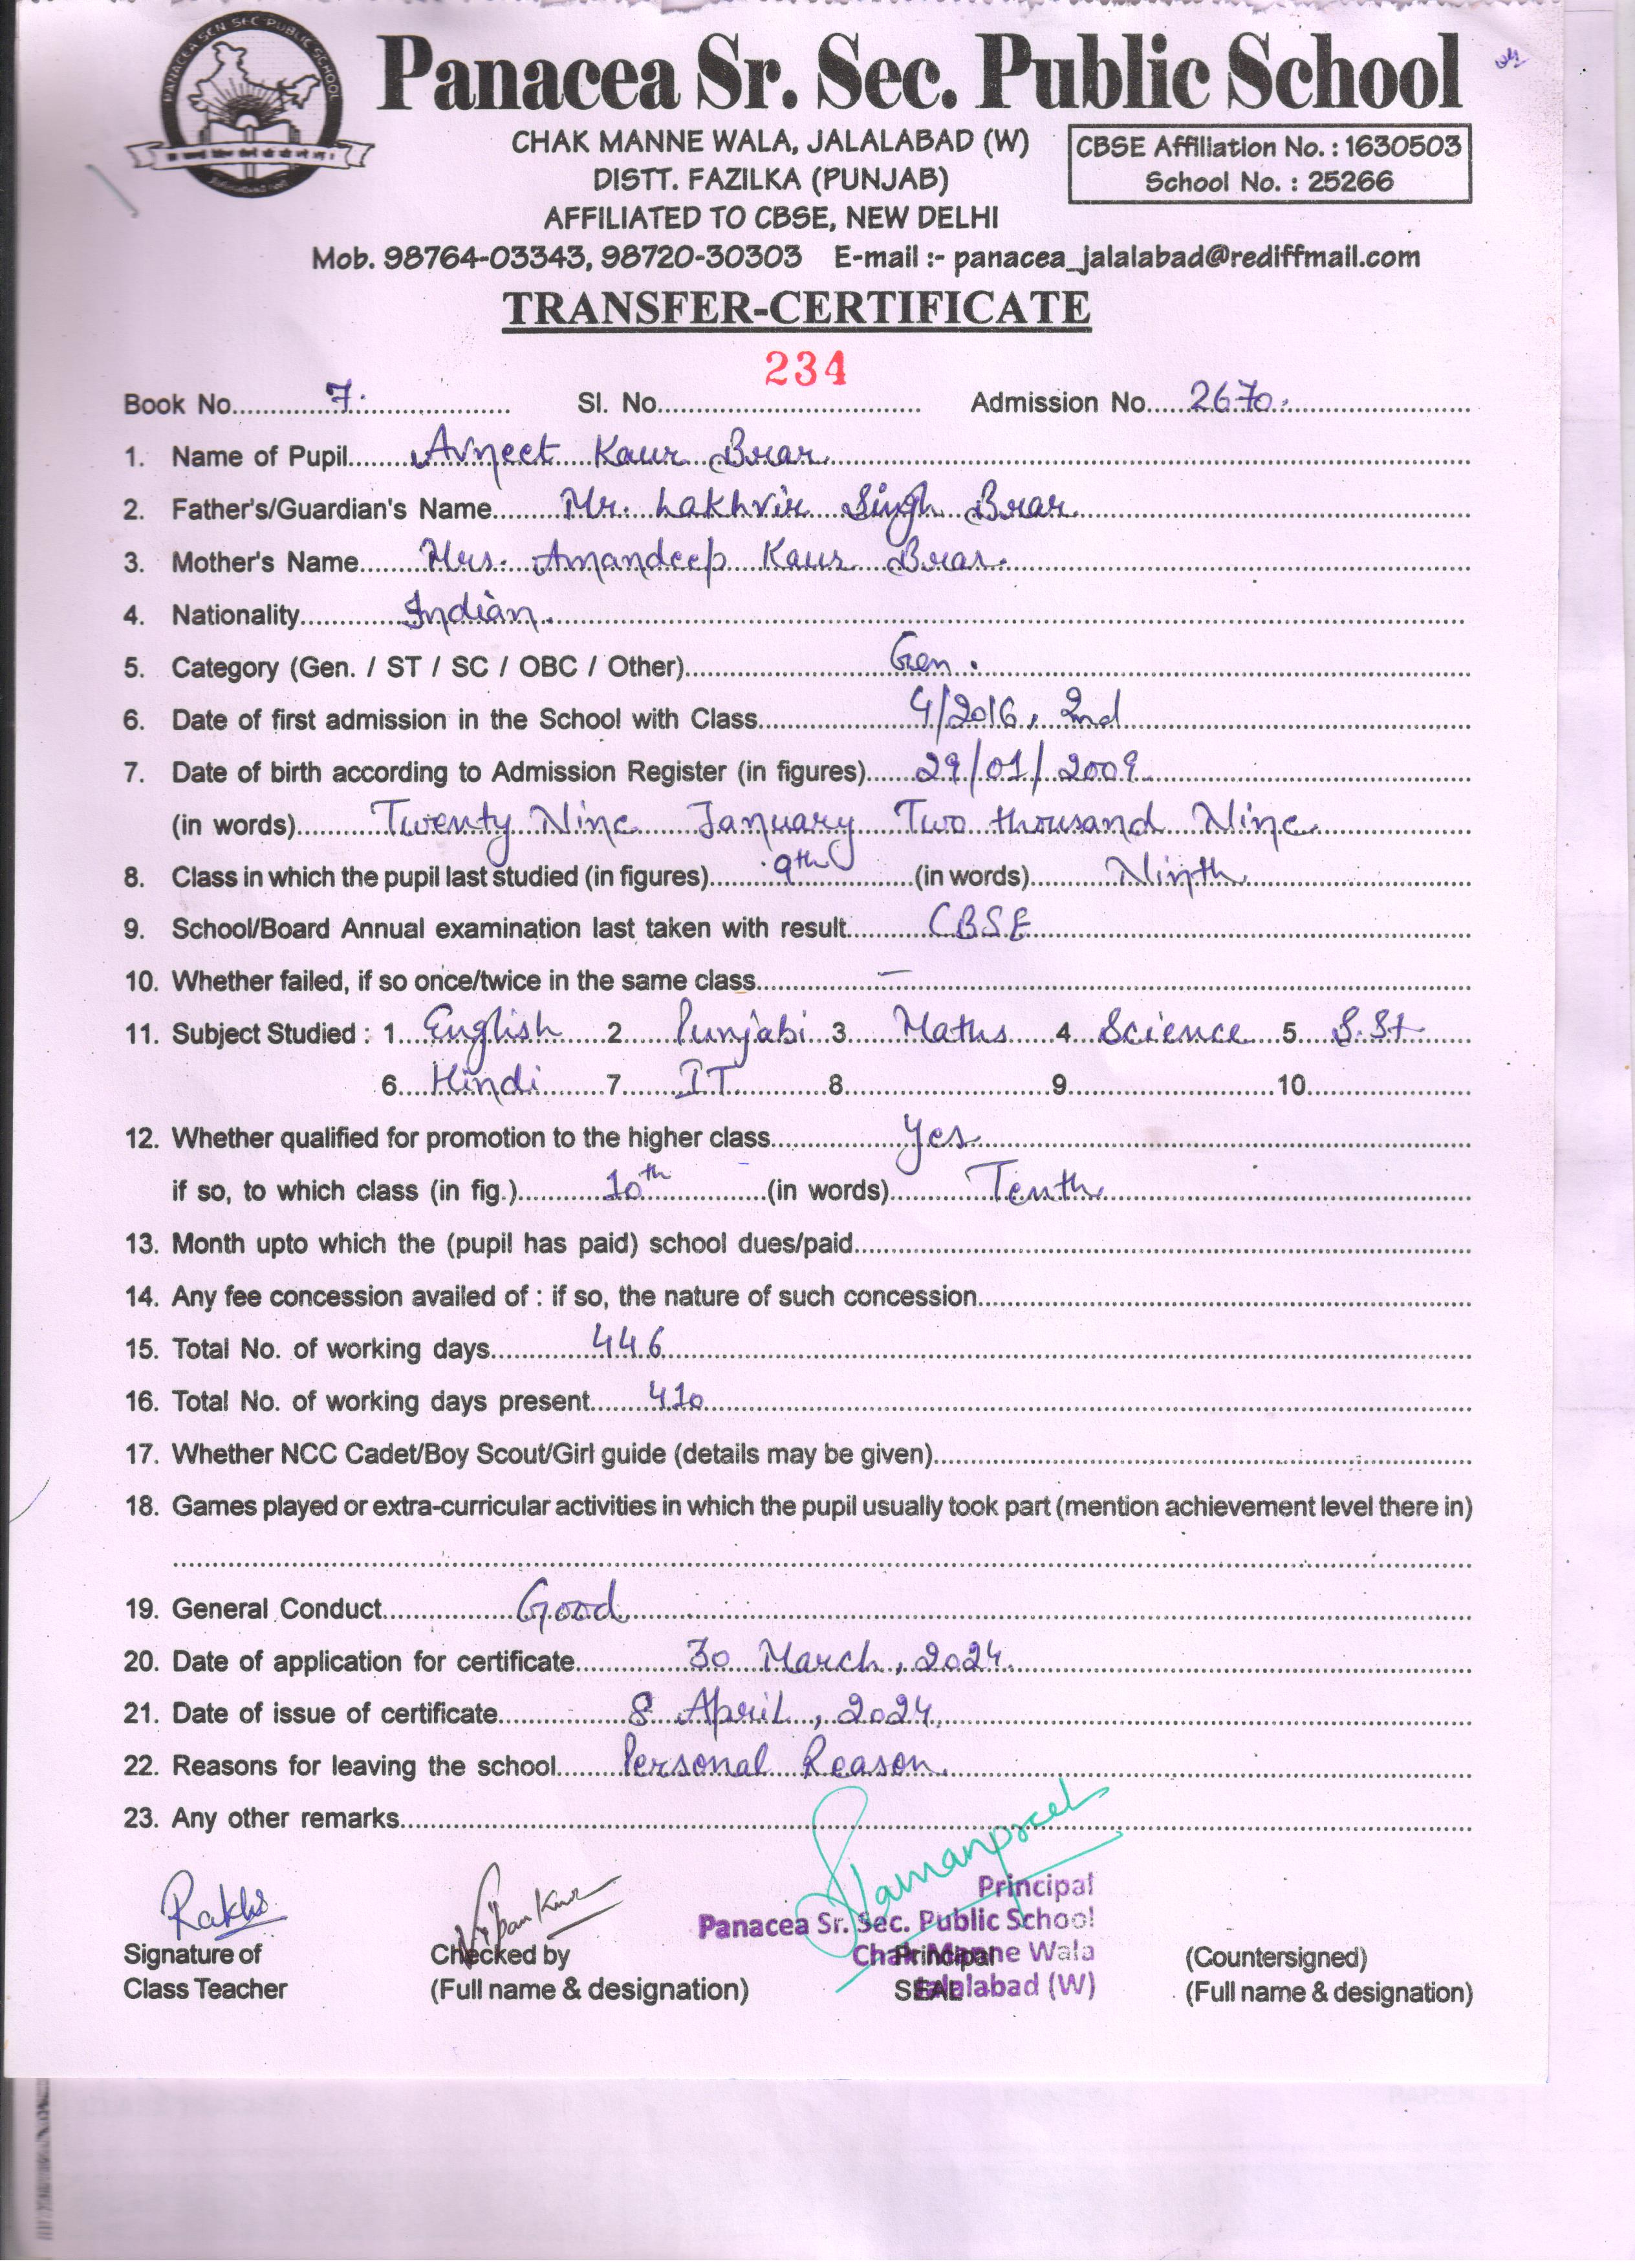 PANACEA SEN SEC PUBLIC SCHOOL
Panacea Sr. Sec. Public School
CHAK MANNE WALA, JALALABAD (W)
DISTT. FAZILKA (PUNJAB)
AFFILIATED TO CBSE, NEW DELHI
CBSE Affiliation No. : 1630503
School No. : 25266
Mob. 98764-03343, 98720-30303 E-mail :- panacea_jalalabad@rediffmail.com
TRANSFER-CERTIFICATE
234
Book No. 7. Sl. No. Admission No. 2670.
1. Name of Pupil Avneet Kaur Brar
2. Father's/Guardian's Name Mr. Lakhvir Singh Brar
3. Mother's Name Mrs. Amandeep Kaur Brar.
4. Nationality Indian.
5. Category (Gen. / ST / SC / OBC / Other) Gen.
6. Date of first admission in the School with Class 4/2016, 2nd
7. Date of birth according to Admission Register (in figures) 29/01/2009
(in words) Twenty Nine January Two thousand Nine
8. Class in which the pupil last studied (in figures) 9th (in words) Ninth
9. School/Board Annual examination last taken with result CBSE
10. Whether failed, if so once/twice in the same class —
11. Subject Studied : 1 English 2 Punjabi 3 Maths 4 Science 5 S.St
6 Hindi 7 IT 8 9 10
12. Whether qualified for promotion to the higher class Yes
if so, to which class (in fig.) 10th (in words) Tenth
13. Month upto which the (pupil has paid) school dues/paid
14. Any fee concession availed of : if so, the nature of such concession
15. Total No. of working days 446
16. Total No. of working days present 410
17. Whether NCC Cadet/Boy Scout/Girl guide (details may be given)
18. Games played or extra-curricular activities in which the pupil usually took part (mention achievement level there in)
19. General Conduct Good
20. Date of application for certificate 30 March, 2024.
21. Date of issue of certificate 8 April, 2024.
22. Reasons for leaving the school Personal Reason.
23. Any other remarks
Principal
Panacea Sr. Sec. Public School
Chak Manne Wala
Jalalabad (W)
Signature of
Class Teacher
Checked by
(Full name & designation)
Principal
SEAL
(Countersigned)
(Full name & designation)